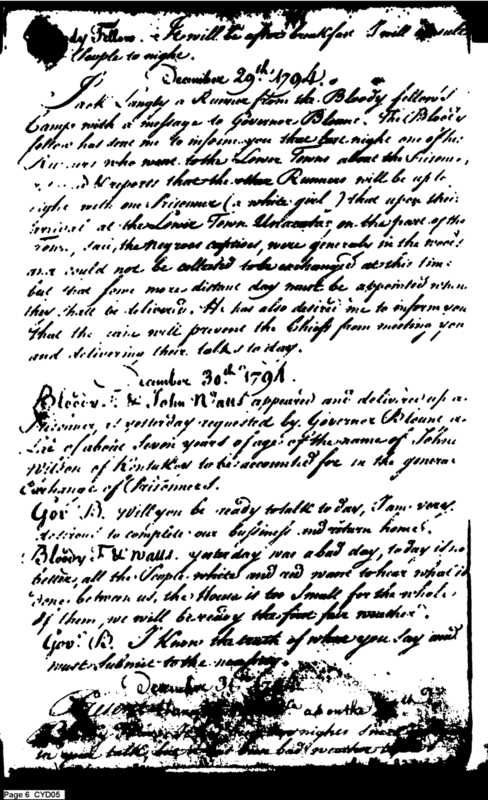 Bloody Fellow. It will be after breakfast I will consult
People to night.
December 29th 1794.
Jack Langly a Runner from the Bloody fellow's
Camp with a message to Governor Blount. The Bloody
fellow has sent me to inform you that last night one of the
Runners who went to the Lower Towns about the Prisoners,
returned & reports that the other Runners will be up to
night with one Prisoner (a white girl) that upon their
arrival at the Lower Town on the part of the
said, the Negroes captives, were generally in the woods
and could not be collected to be exchanged at this time
but that some more distant day must be appointed when
they shall be delivered. He has also desired me to inform you
that the rain will prevent the Chiefs from meeting you
and delivering their talks to day.
December 30th 1794.
Bloody F. & John Watts appeared and delivered up a
Prisoner as yesterday requested by Governor Blount a
of about Seven years of age of the name of John
Wilson of Kentuckey to be accounted for in the general
Exchange of Prisoners.
Gov. B. Will you be ready to talk to day, I am very
desirous to complete our bussiness and return home.
Bloody F. & Watts. yesterday was a bad day, to day is no
better, all the People white and red want to hear what is
done between us, the House is too Small for the whole
of them, we will be ready the first fair weather.
Gov. B. I Know the truth of what you Say and
must Submit to the necessity.
December 31st 1794
nights Since
in your talk, but has been bad weather
Page 6 CYD05